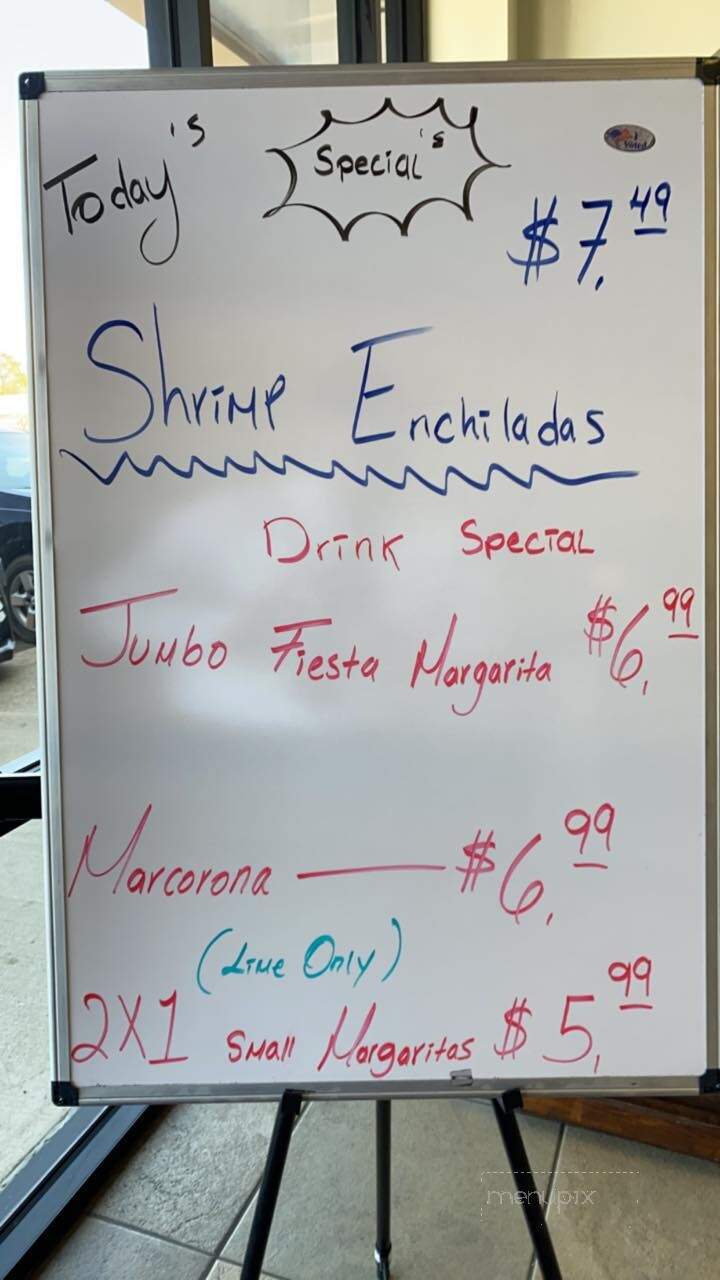 Today's
Special's
I Voted
$7.49
Shrimp Enchiladas
Drink Special
Jumbo Fiesta Margarita $6.99
Marcorona — $6.99
(Lime Only)
2X1 Small Margaritas $5.99
menupix